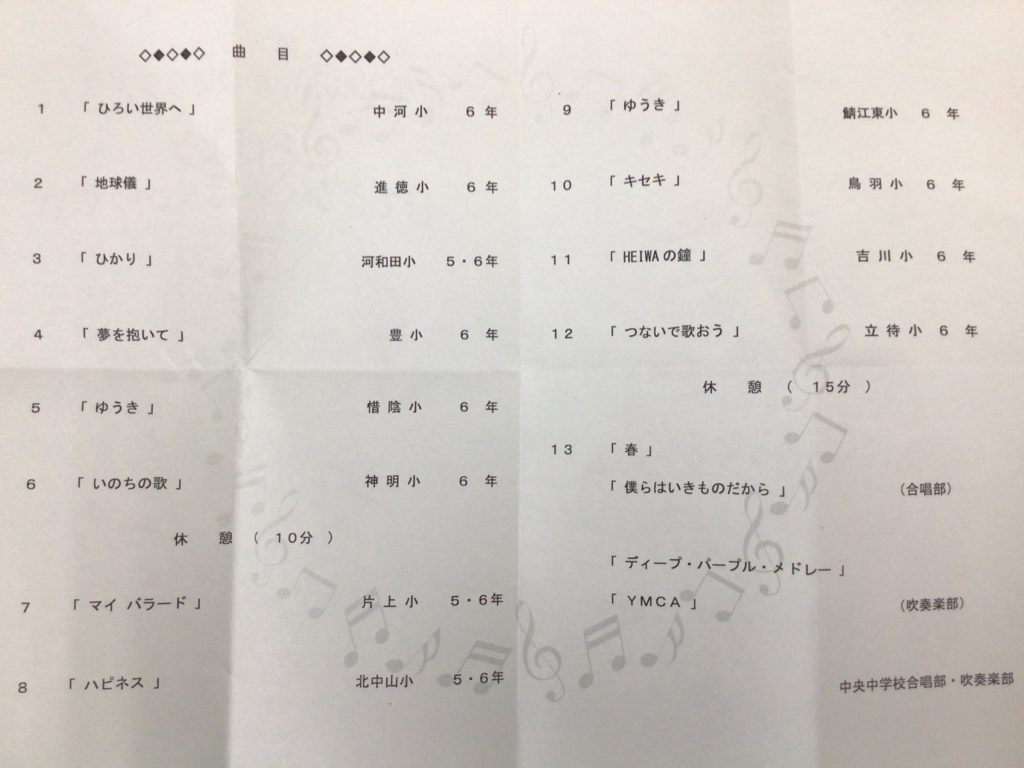 ◇◆◇◆◇ 曲 目 ◇◆◇◆◇
1 「 ひろい世界へ 」 中 河 小 6 年
2 「 地球儀 」 進 徳 小 6 年
3 「 ひかり 」 河和田小 5・6年
4 「 夢を抱いて 」 豊 小 6 年
5 「 ゆうき 」 惜 陰 小 6 年
6 「 いのちの歌 」 神 明 小 6 年
休 憩 ( 10分 )
7 「 マイ バラード 」 片 上 小 5・6年
8 「 ハピネス 」 北中山小 5・6年
9 「 ゆうき 」 鯖江東小 6 年
10 「 キセキ 」 鳥 羽 小 6 年
11 「 HEIWAの鐘 」 吉 川 小 6 年
12 「 つないで歌おう 」 立 待 小 6 年
休 憩 ( 15分 )
13 「 春 」
「 僕らはいきものだから 」 (合唱部)
「 ディープ・パープル・メドレー 」
「 YMCA 」 (吹奏楽部)
中央中学校合唱部・吹奏楽部